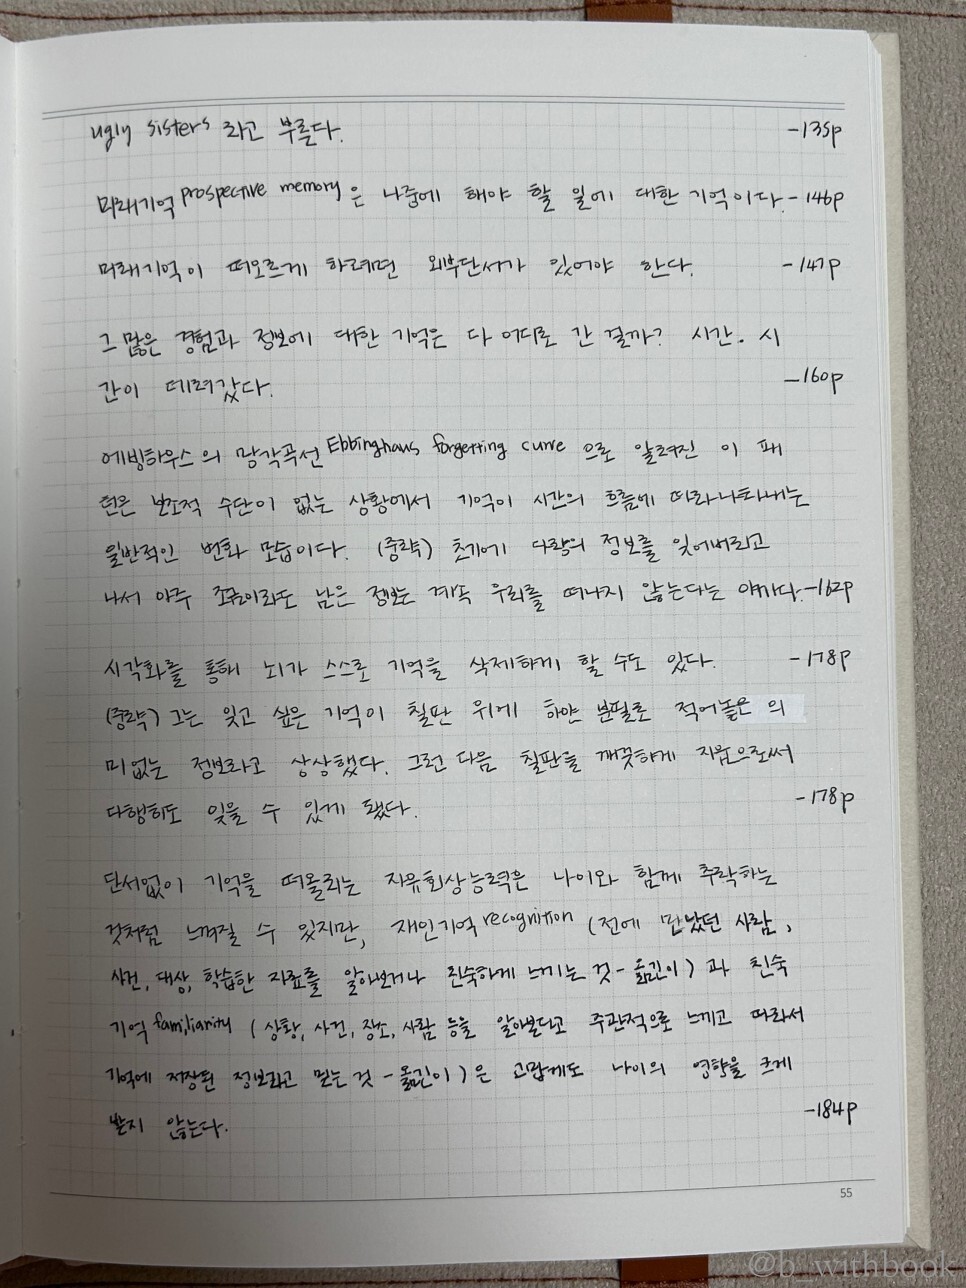 ugly sisters 라고 부른다. -135p
미래기억 prospective memory 은 나중에 해야 할 일에 대한 기억이다. -146p
미래기억이 떠오르게 하려면 외부단서가 있어야 한다. -147p
그 많은 경험과 정보에 대한 기억은 다 어디로 간 걸까? 시간. 시
간이 데려갔다. -160p
에빙하우스의 망각곡선 Ebbinghaus forgetting curve 으로 알려진 이 패
턴은 보조적 수단이 없는 상황에서 기억이 시간의 흐름에 따라 나타내는
일반적인 변화 모습이다. (중략) 초기에 다량의 정보를 잊어버리고
나서 아주 조금이라도 남은 정보는 계속 우리를 떠나지 않는다는 얘기다. -162p
시각화를 통해 뇌가 스스로 기억을 삭제하게 할 수도 있다. -178p
(중략) 그는 잊고 싶은 기억이 칠판 위에 하얀 분필로 적어놓은 의
미없는 정보라고 상상했다. 그런 다음 칠판을 깨끗하게 지움으로써
다행히도 잊을 수 있게 됐다. -178p
단서없이 기억을 떠올리는 자유회상능력은 나이와 함께 추락하는
것처럼 느껴질 수 있지만, 재인기억 recognition (전에 만났던 사람,
사건, 대상, 학습한 자료를 알아보거나 친숙하게 느끼는 것-옮긴이) 과 친숙
기억 familiarity (상황, 사건, 장소, 사람 등을 알아본다고 주관적으로 느끼고 따라서
기억에 저장된 정보라고 믿는 것-옮긴이) 은 고맙게도 나이의 영향을 크게
받지 않는다. -184p
55
@b_withbook